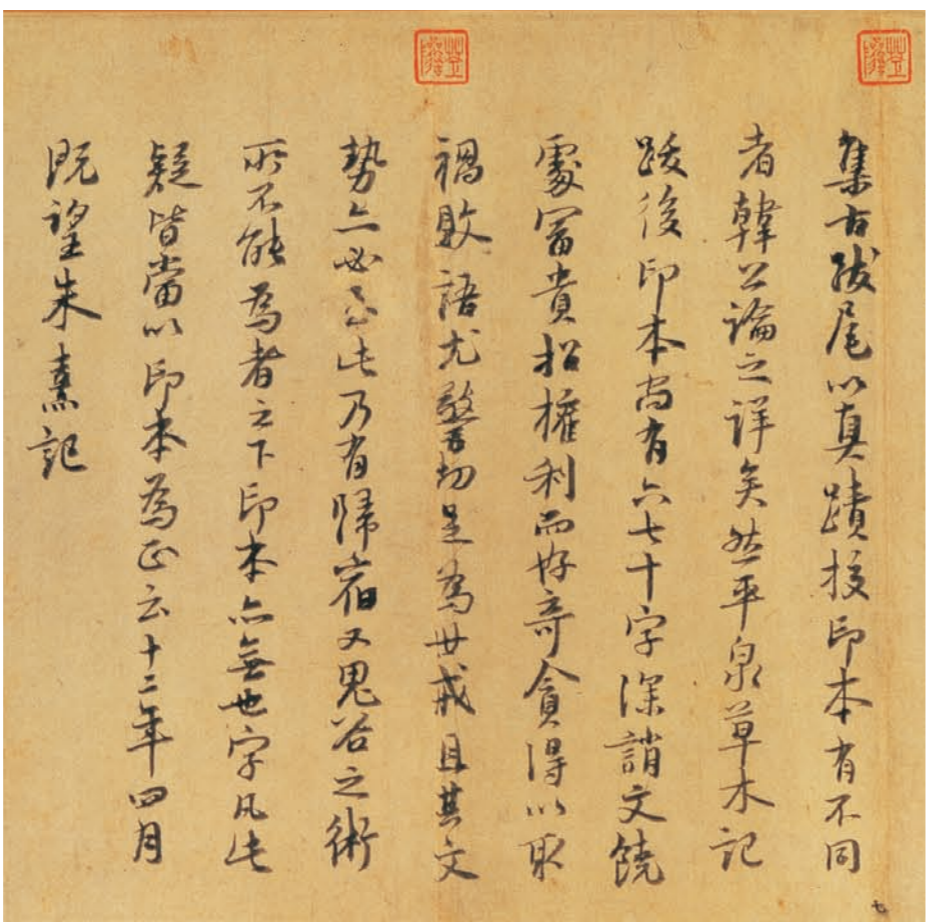 集古跋尾以真蹟挍印本有不同
者韓公論之詳矣然平泉草木記
跋後印本尚有六七十字深誚文饒
處富貴招權利而好奇貪得以取
禍敗語尤警切足為世戒且其文
勢亦必至此乃有歸宿又鬼谷之術
所不能為者之下印本亦無也字凡此
疑皆當以印本為正云十二年四月
既望朱熹記
七